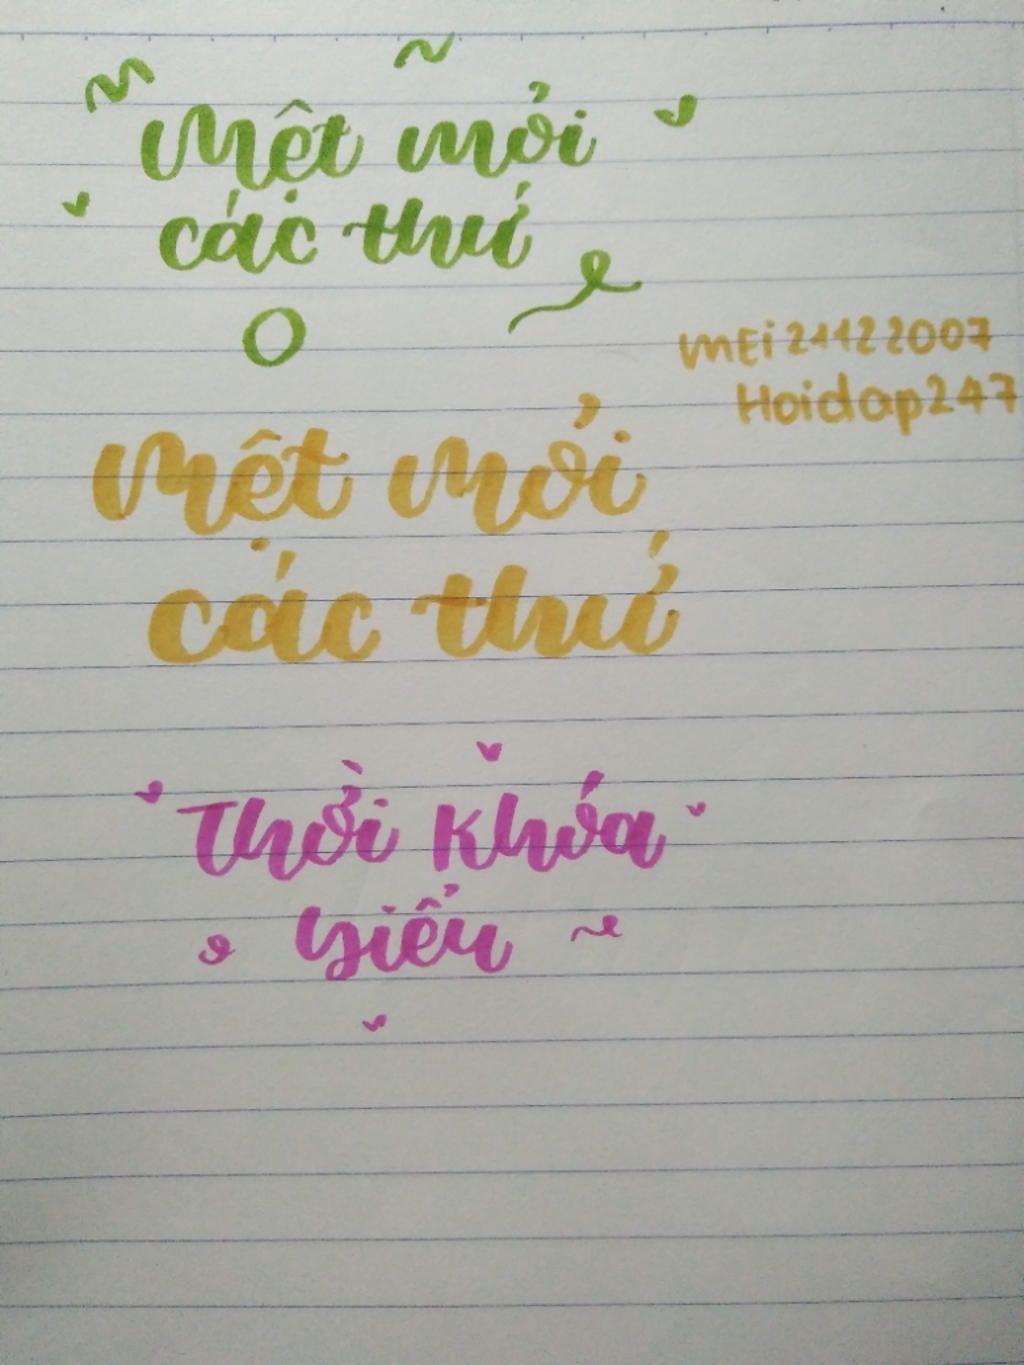 Mệt mỏi
các thứ
mEi21122007
Hoidap247
Mệt mỏi
các thứ
Thời khóa
biểu